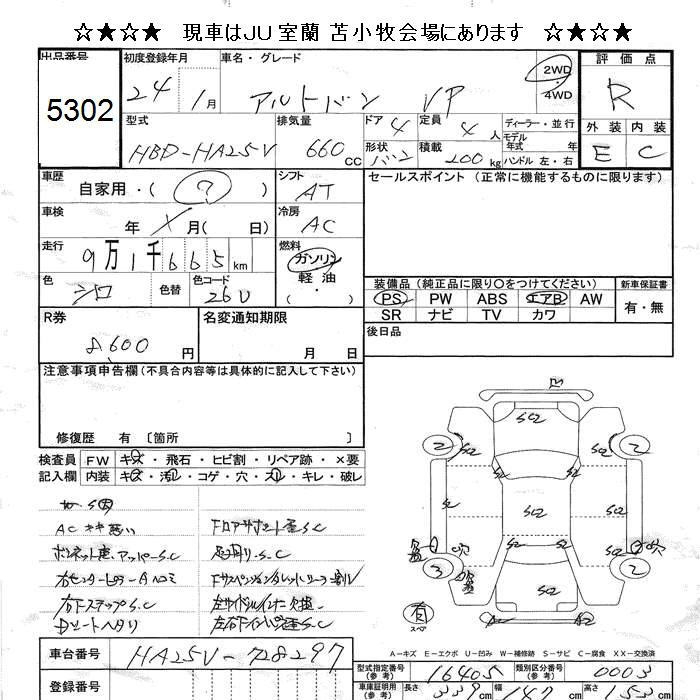 ☆★☆★ 現車はJU室蘭 苫小牧会場にあります ☆★☆★
出品番号 初度登録年月 車名・グレード 2WD・4WD 評価点
5302 24年 1月 アルトバン VP R
型式 排気量 ドア 4 定員 4人 ディーラー・並行 外装 内装
HBD-HA25V 660cc 形状 バン 積載 200kg モデル年式 年式 ハンドル 左・右 E C
車歴 自家用・(?) シフト AT セールスポイント (正常に機能するものに限ります)
車検 年 X 月( 日) 冷房 AC
走行 9万1千665km 燃料 ガソリン 軽油・( )
色 シロ 色替 色コード 26U 装備品 (純正品に限り〇をつけてください) 新車保証書
PS PW ABS エアB AW 有・無
SR ナビ TV カワ
R券 8600円 名変通知期限 月 日 後日品
注意事項申告欄(不具合内容等は具体的に記入して下さい)
修復歴 有 〔箇所 〕
検査員記入欄 FW キズ・飛石・ヒビ割・リペア跡・×要
内装 キズ・汚レ・コゲ・穴・スレ・キレ・破レ
ACキキ悪い フロアサポート歪S.C
ボンネット歪アッパーS.C 足廻りS.C
右センターピラーAヘコミ
右下ステップS.C 左サイドシルインナー欠品
Dシートヘタリ
SC2
2 SC2 2
S2 SC2 S2
3 SC2 2
穴
有 スペア
A-キズ E-エクボ U-凹み W-補修跡 S-サビ C-腐食 XX-交換済
車台番号 HA25V-728297 型式指定番号(参考) 16405 類別区分番号(参考) 0003
登録番号 車体証明書(参考) 長さ 339cm 幅 147cm 高さ cm